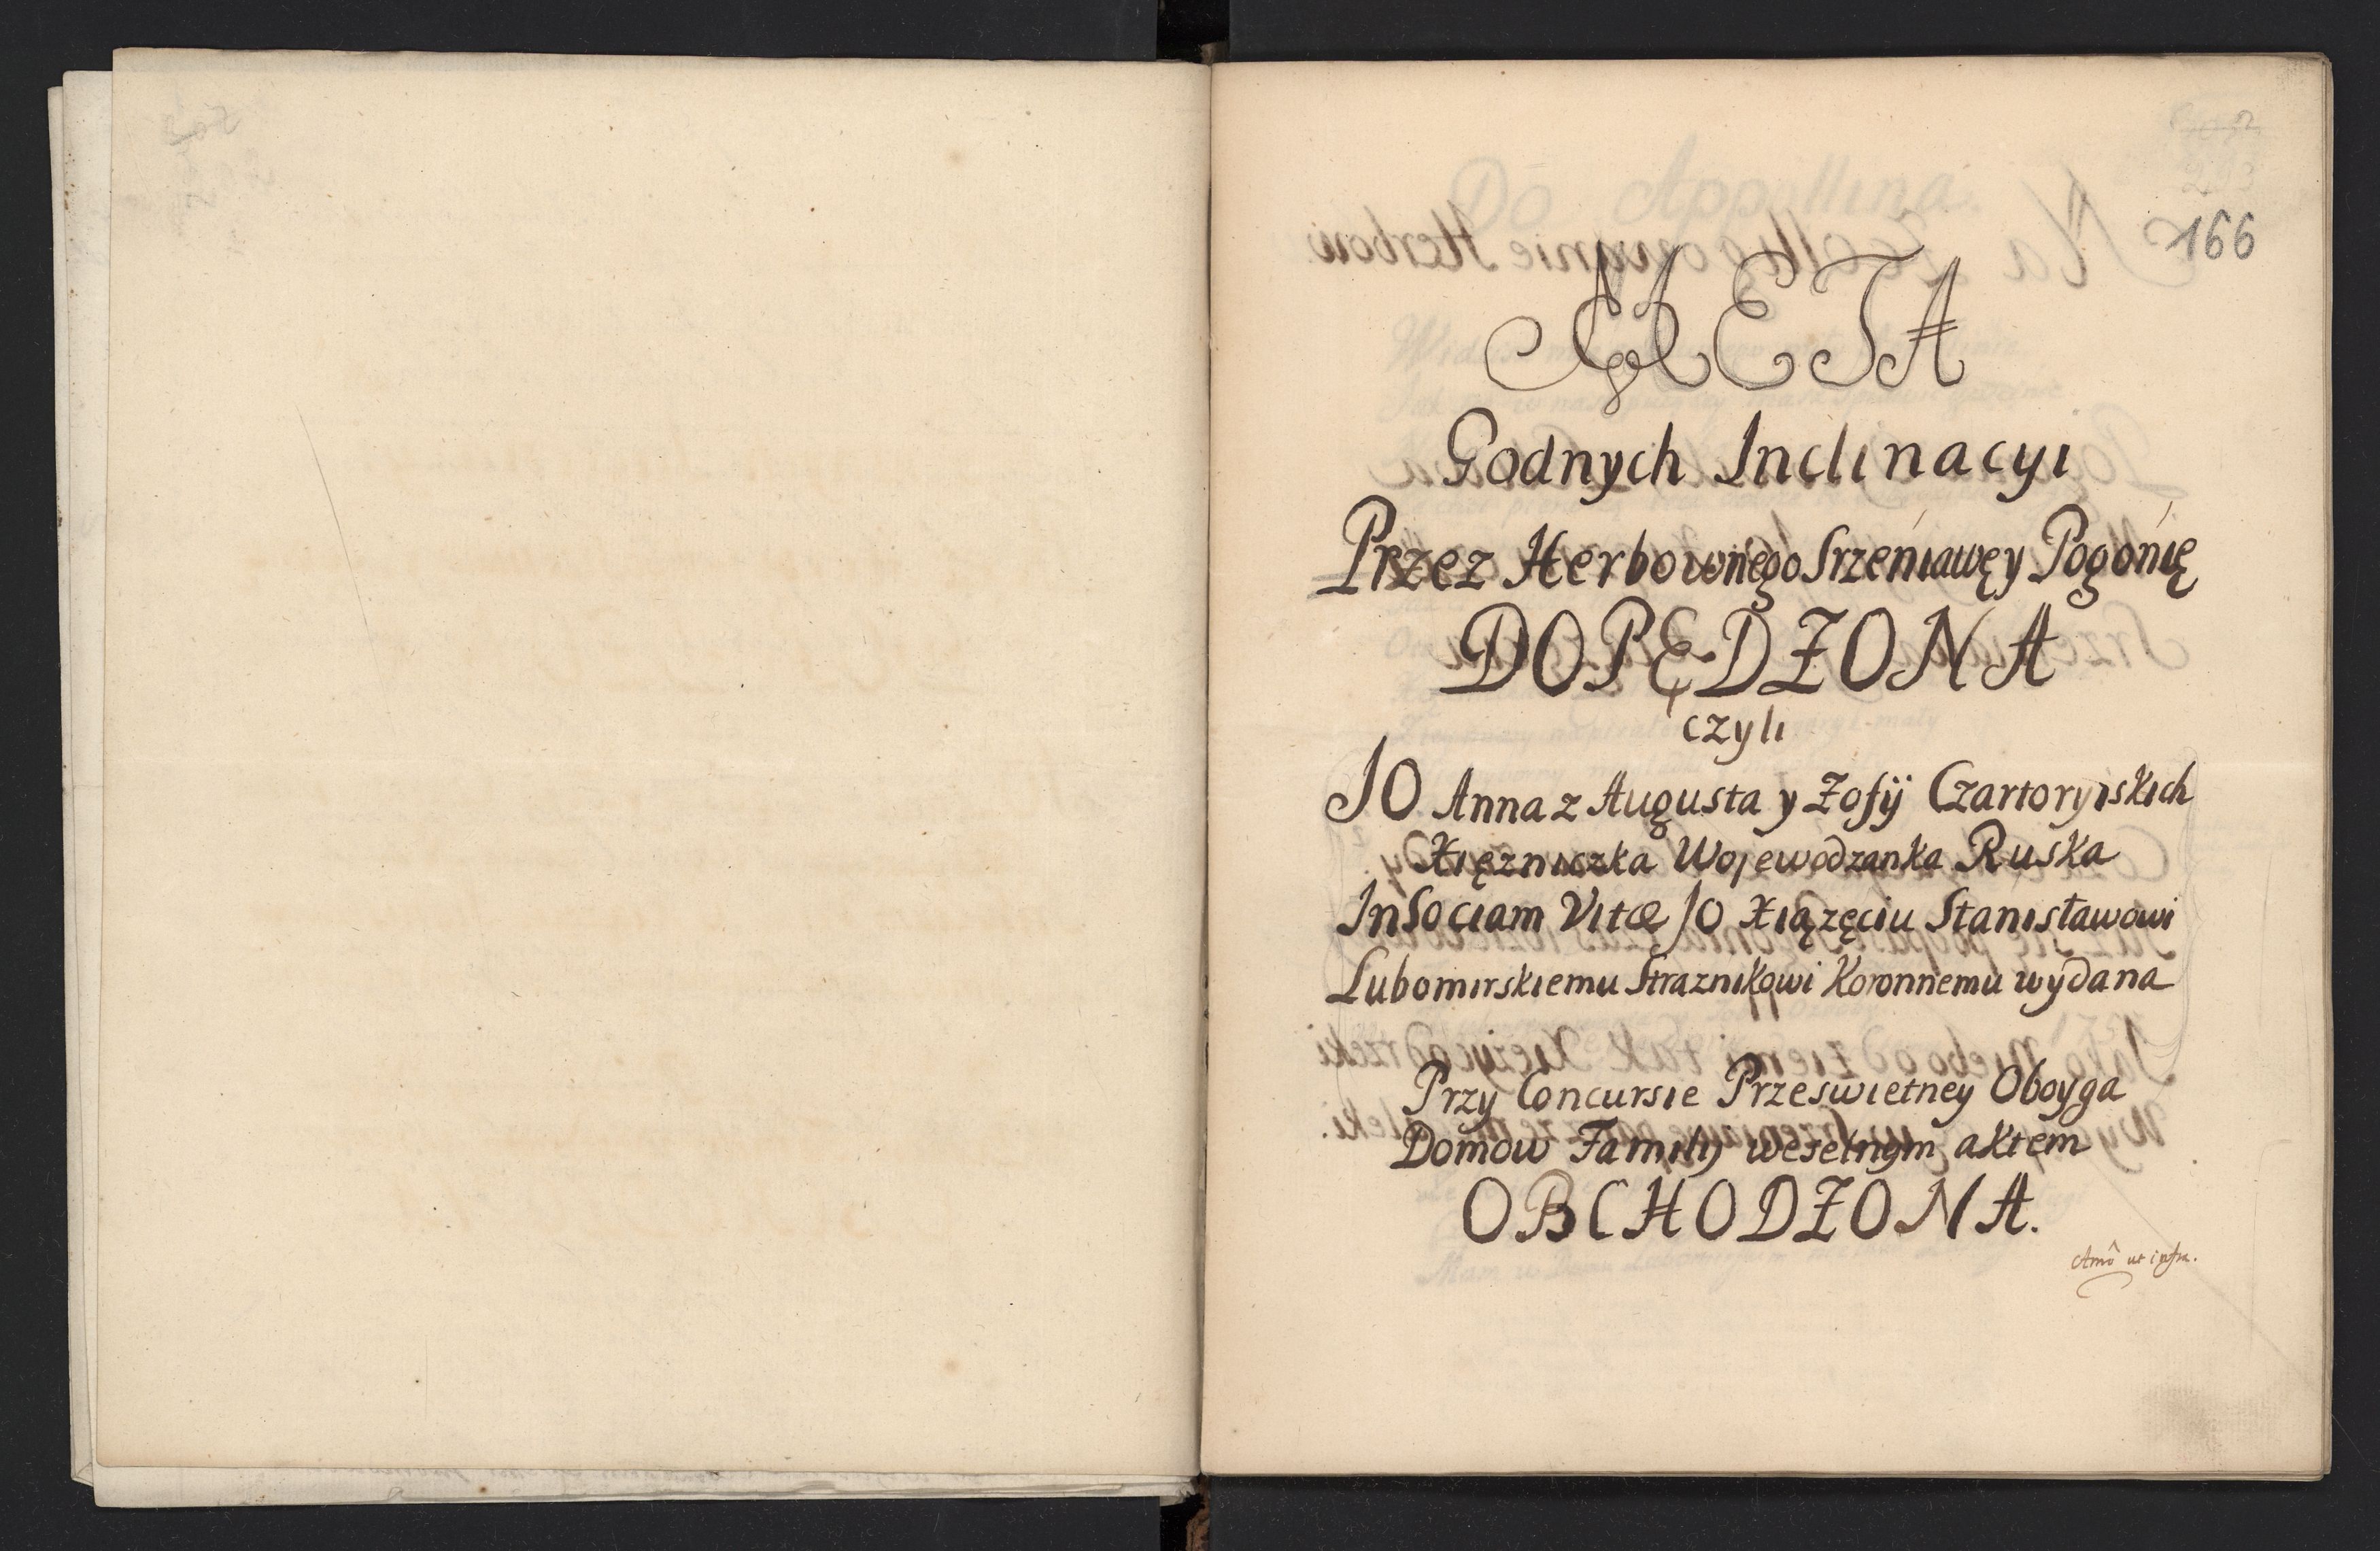 166
META
Godnych Inclinacyi
Przez Herbownego Srzeniawę y Pogonię
DOPĘDZONA
czyli
JO Anna z Augusta y Zofÿ Czartoryiskich
Xięzniczka Wojewodzanka Ruska
In Sociam Vitæ JO Xiązęciu Stanisławowi
Lubomirskiemu Straznikowi Koronnemu wydana
Przy Concursie Przeswietney Oboyga
Domow Familij weselnym aktem
OBCHODZONA.
Anno ut infra.